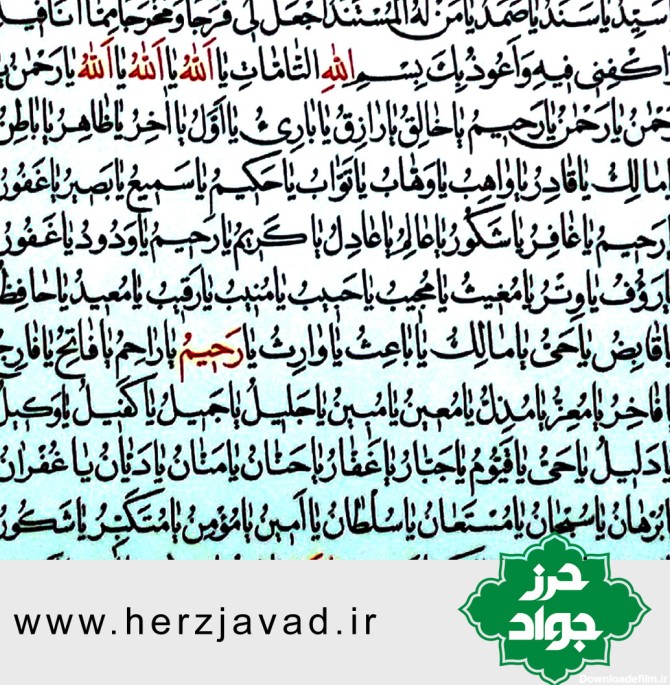 سَيِّدُ يَاسَنَدُ يَاصَمَدُ يَامَنْ لَهُ الْمُسْتَنَدُ اجْعَلْ لِي فَرَجًا وَمَخْرَجًا مِمَّا أَنَا فِيهِ
اكْفِنِي فِيهِ وَأَعُوذُ بِكَ بِسْمِ اللهِ التَّامَّاتِ يَا اَللهُ يَا اَللهُ يَا اَللهُ يَارَحْمٰنُ
يَارَحْمٰنُ يَارَحِيمُ يَاخَالِقُ يَارَازِقُ يَابَارِئُ يَااَوَّلُ يَااٰخِرُ يَاظَاهِرُ يَابَاطِنُ
يَامَالِكُ يَاقَادِرُ يَاوَاهِبُ يَاوَهَّابُ يَاتَوَّابُ يَاحَكِيمُ يَاسَمِيعُ يَابَصِيرُ يَاغَفُورُ
يَارَحِيمُ يَاغَافِرُ يَاشَكُورُ يَاعَالِمُ يَاعَادِلُ يَاكَرِيمُ يَارَحِيمُ يَاوَدُودُ يَاغَفُورُ
رَؤُفُ يَاوِتْرُ يَامُغِيثُ يَامُجِيبُ يَاحَبِيبُ يَامُنِيبُ يَارَقِيبُ يَامُعِيدُ يَاحَافِظُ
يَاقَابِضُ يَاحَيُّ يَامَالِكُ يَابَاعِثُ يَاوَارِثُ يَارَحِيمُ يَارَاحِمُ يَافَاتِحُ يَافَارِجُ
فَاخِرُ يَامُعِزُّ يَامُذِلُّ يَامُعِينُ يَامُبِينُ يَاجَلِيلُ يَاجَمِيلُ يَاكَفِيلُ يَاوَكِيلُ
يَادَلِيلُ يَاحَيُّ يَاقَيُّومُ يَاجَبَّارُ يَاغَفَّارُ يَاحَنَّانُ يَامَنَّانُ يَادَيَّانُ يَاغُفْرَانُ
يَابُرْهَانُ يَاسُبْحَانُ يَامُسْتَعَانُ يَاسُلْطَانُ يَااَمِينُ يَامُؤْمِنُ يَامُتَكَبِّرُ يَاشَكُورُ
www.herzjavad.ir
حرز
جواد
Downloadefilm.ir